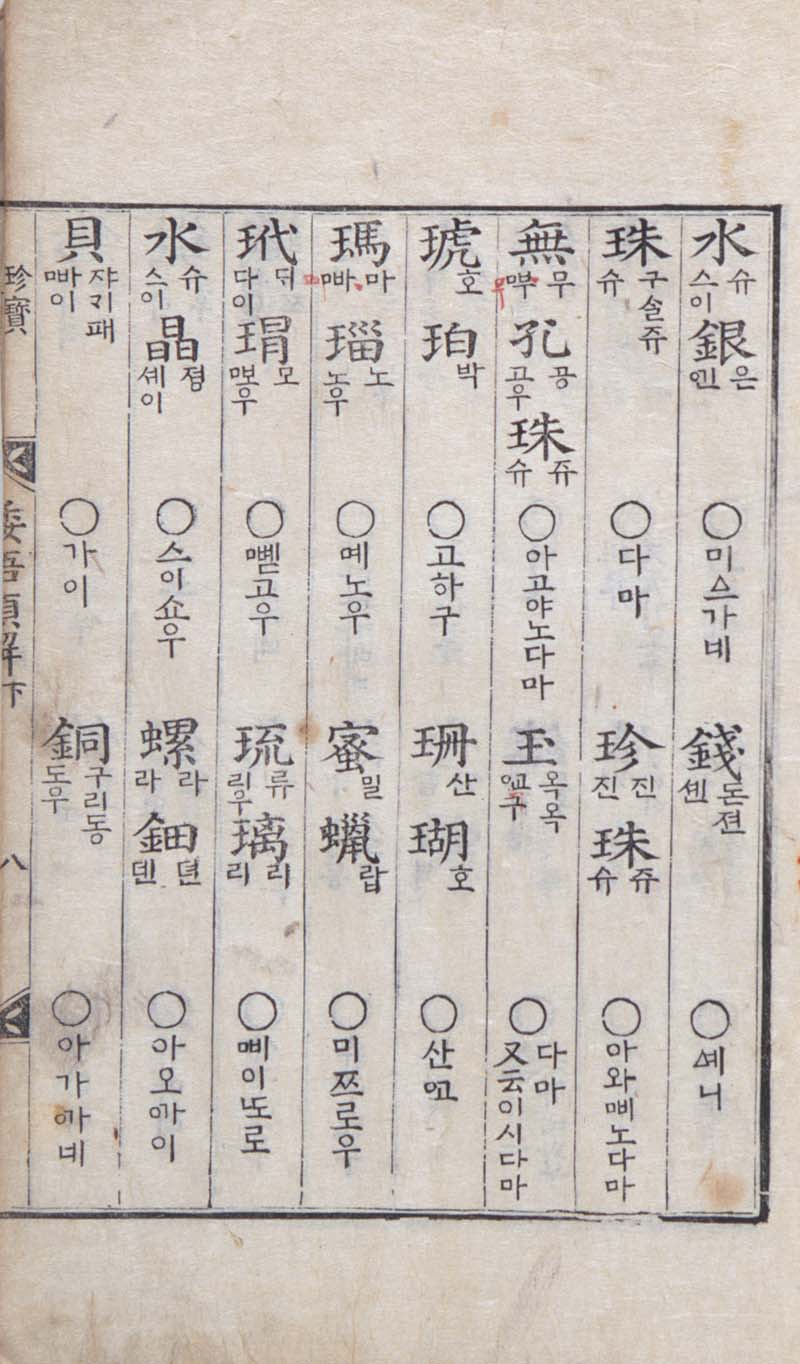 水 슈 스이 銀 은 ᅁᅵᆫ ○미스가네 錢 돈젼 셴 ○ᅀᅨ니
珠 구슬쥬 슈 ○다마 珍 진 진 珠 쥬 슈 ○아와ᄜᅵ노다마
無 무 ᄜᅮ 孔 공 고우 珠 쥬 슈 ○아고야노다마 玉 옥옥 ᅁᅭ구 ○다마 又云이시다마
琥 호 珀 박 ○고하구 珊 산 瑚 호 ○산ᅁᅩ
瑪 마 ᄜᅡ 瑙 노 노우 ○몌노우 蜜 밀 蠟 랍 ○미쯔로우
玳 ᄃᆡ 다이 瑁 모 ᄜᅩ우 ○ᄜᅦᆮ고우 琉 류 리우 璃 리 리 ○ᄜᅵ이ᄕᅩ로
水 슈 스이 晶 졍 셰이 ○스이쇼우 螺 라 라 鈿 뎐 덴 ○아오ᅁᅡ이
貝 쟈ᄀᆡ패 ᄜᅡ이 ○가이 銅 구리동 도우 ○아가ᅁᅡ네
珍寶
倭語類解下
八